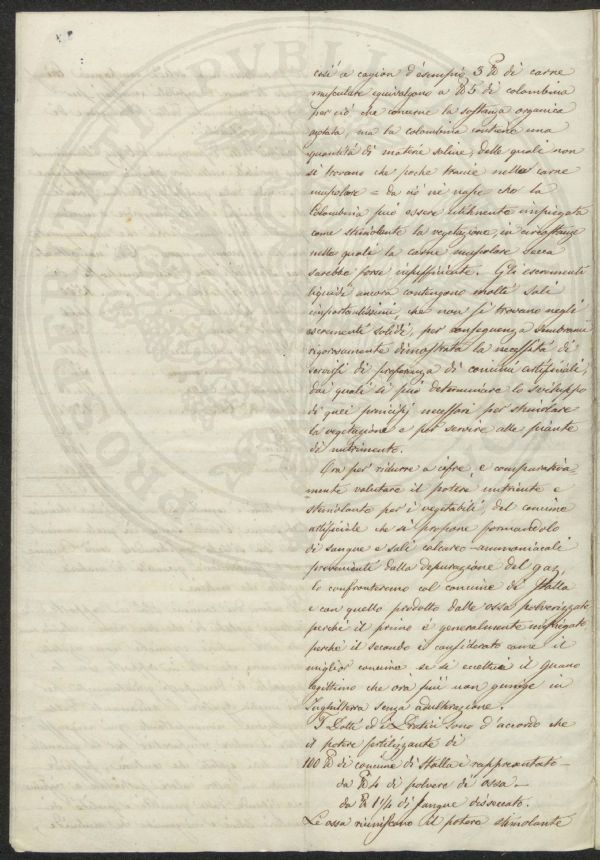 così a cagion d'esempio 3 ℔ di carne
muscolare equivalgono a ℔ 5 di colombina
per ciò che concerne la sostanza organica
azotata, ma la colombina contiene una
quantità di materie saline, delle quali non
si trovano che poche traccie nella carne
muscolare = da ciò ne nasce che la
Colombina può essere utilmente impiegata
come stimolante la vegetazione, in circostanze
nelle quali la carne muscolare secca
sarebbe forse insufficiente. Gli escrementi
liquidi ancora contengono molti sali
importantissimi, che non si trovano negli
escrementi solidi, per conseguenza sembrami
rigorosamente dimostrata la necessità di
servirsi di preferenza di concimi artificiali,
dai quali si può determinare lo sviluppo
di quei principj necessari per stimolare
la vegetazione e per servire alle piante
di nutrimento.
Ora per ridurre a cifre, e comparativa-
mente valutare il potere nutriente e
stimolante per i vegetabili, del concime
artificiale che si propone formandolo
di sangue e sali calcareo-ammoniacali
provenienti dalla depurazione del gaz,
lo confronteremo col concime di stalla
e con quello prodotto dalle ossa polverizzate
perchè il primo è generalmente impiegato
perchè il secondo è considerato come il
miglior concime se si eccettua il guano
legittimo che ora più non giunge in
Inghilterra senza adulterazione.
I Dotti ed i Pratici sono d'accordo che
il potere fertilizzante di
100 ℔ di concime di stalla è rappresentato
da ℔ 4 di polvere di ossa
da ℔ 1¼ di sangue disseccato.
Le ossa riuniscono il potere stimolante